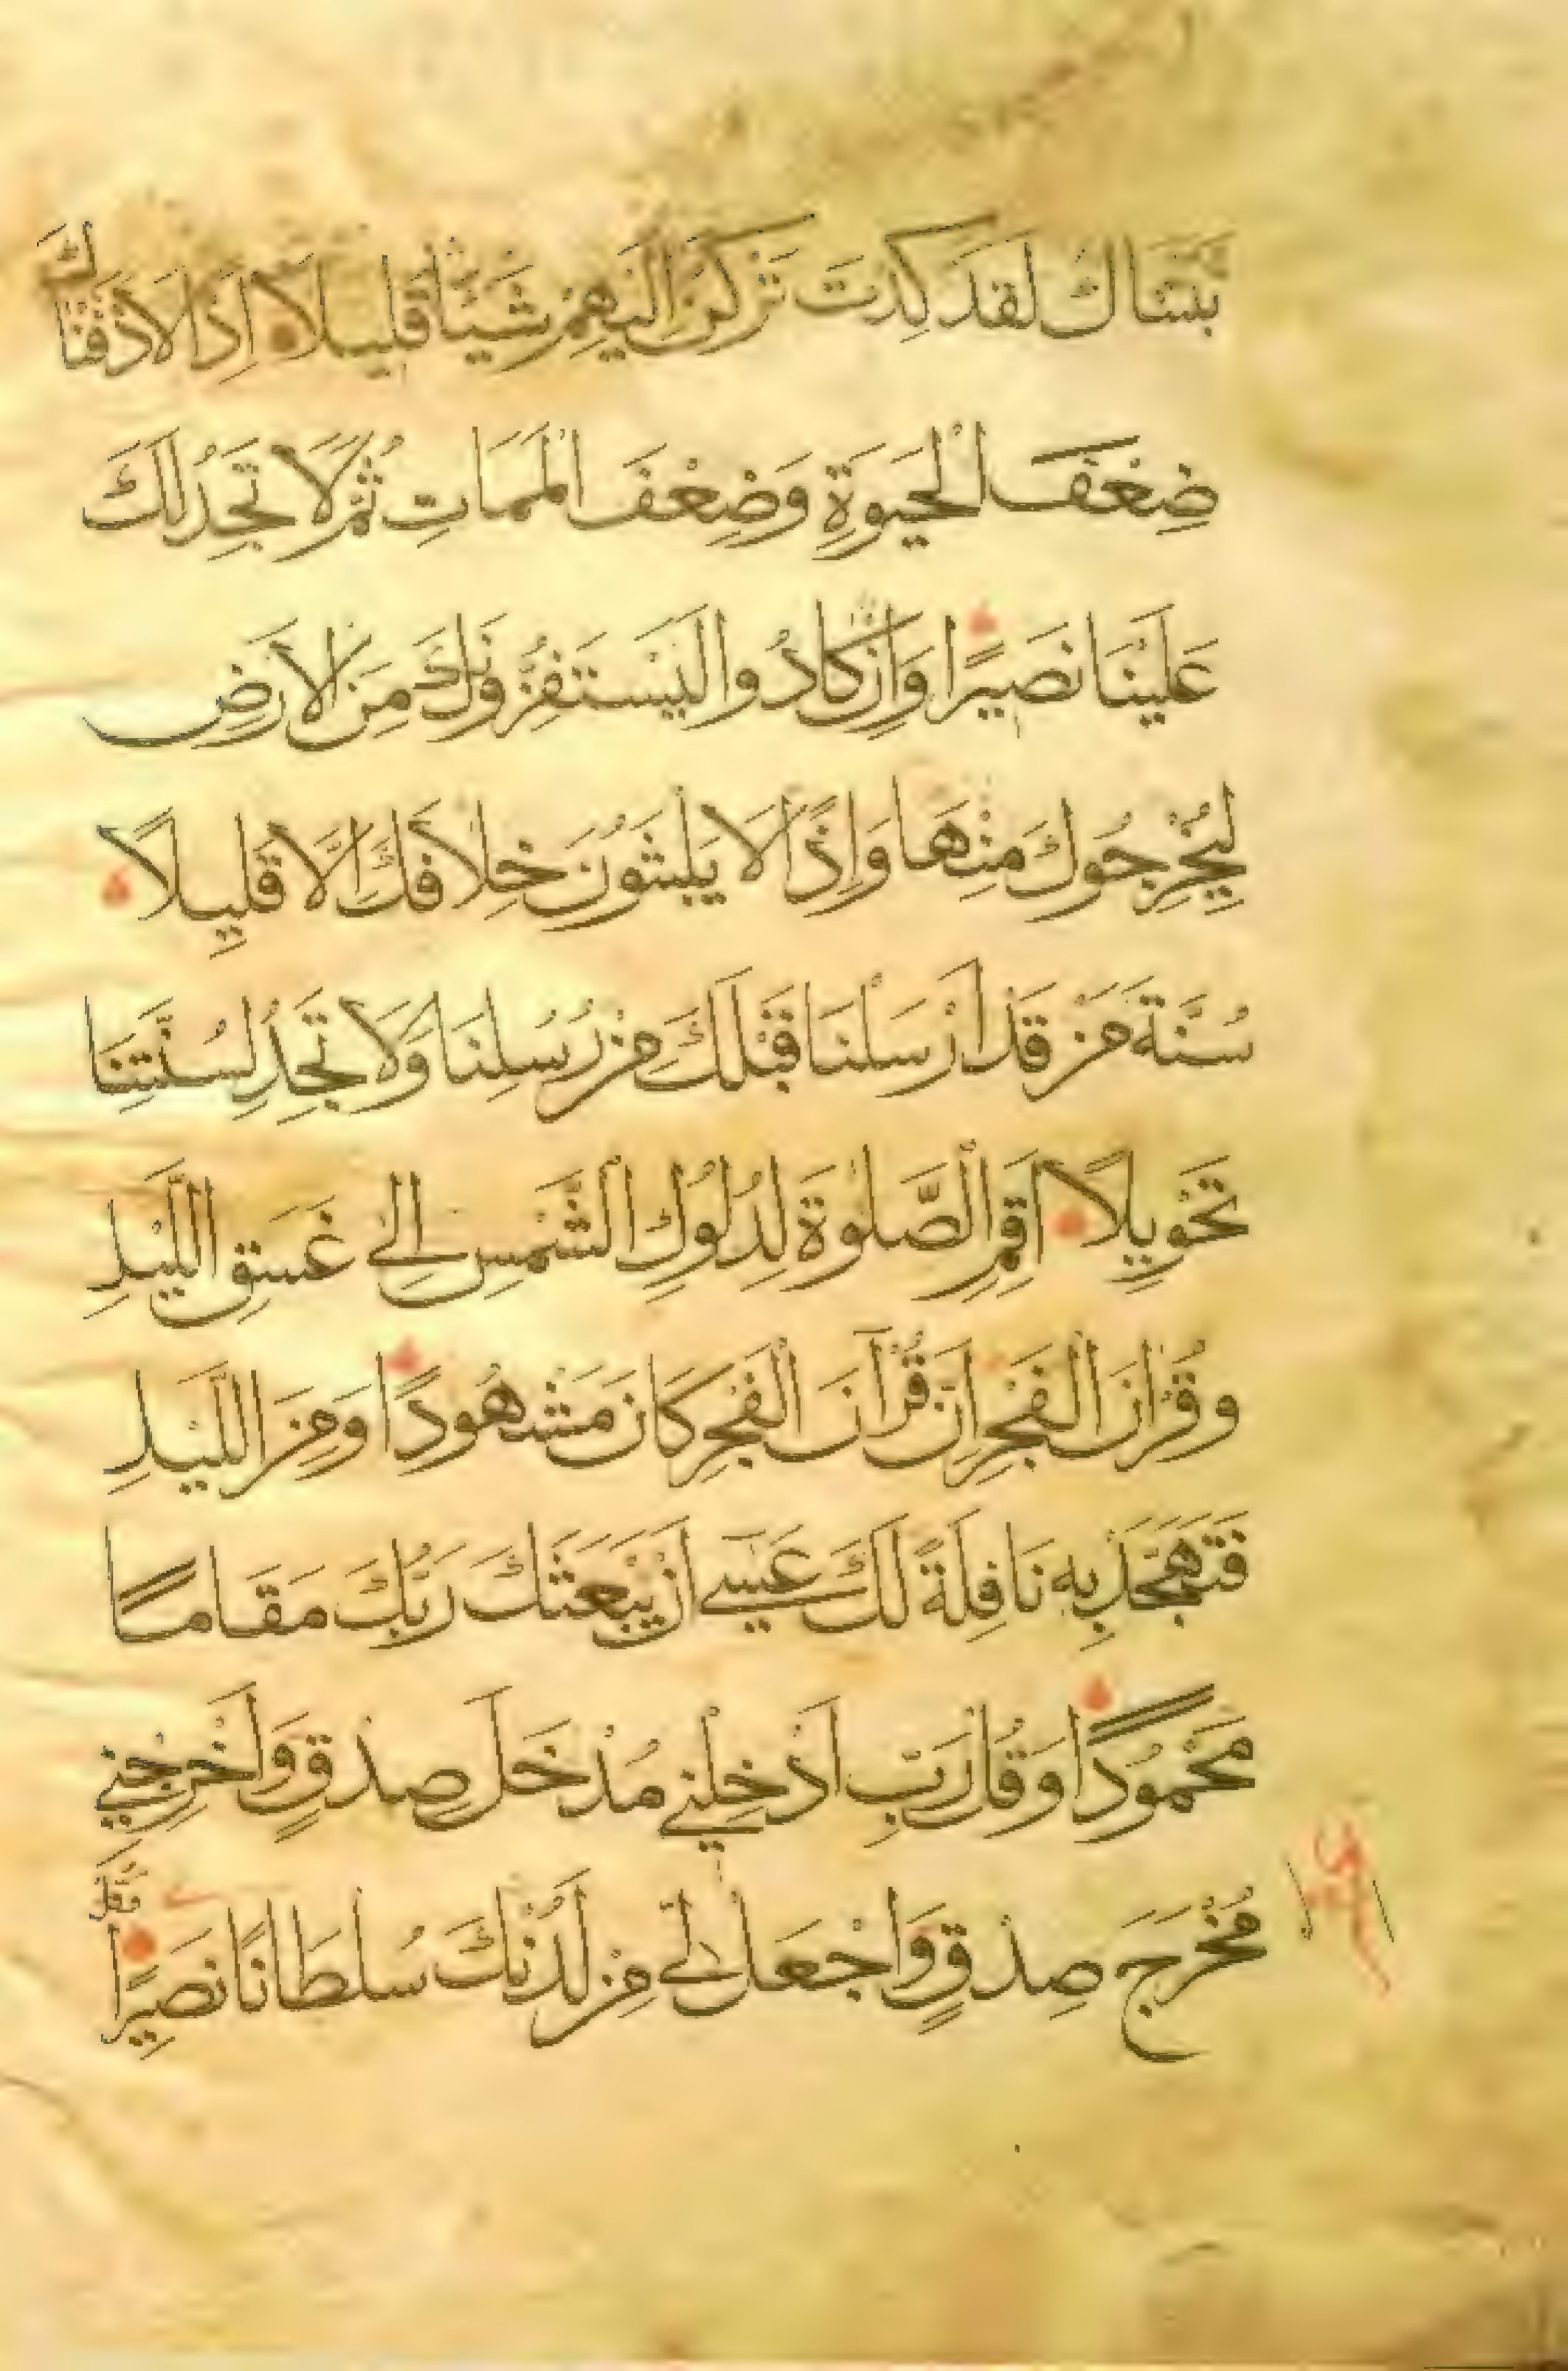 ثبتناك لقد كدت تركن اليهم شيئا قليلا اذا لاذقناك
ضِعْفَ الْحَيٰوةِ وَضِعْفَ الْمَمَاتِ ثُمَّ لَا تَجِدُ لَكَ
عَلَيْنَا نَصِيرًا وَاِنْ كَادُوا لَيَسْتَفِزُّونَكَ مِنَ الْاَرْضِ
لِيُخْرِجُوكَ مِنْهَا وَاِذًا لَا يَلْبَثُونَ خِلَافَكَ اِلَّا قَلِيلًا
سُنَّةَ مَنْ قَدْ اَرْسَلْنَا قَبْلَكَ مِنْ رُسُلِنَا وَلَا تَجِدُ لِسُنَّتِنَا
تَحْوِيلًا اَقِمِ الصَّلٰوةَ لِدُلُوكِ الشَّمْسِ اِلٰى غَسَقِ الَّيْلِ
وَقُرْاٰنَ الْفَجْرِ اِنَّ قُرْآنَ الْفَجْرِ كَانَ مَشْهُودًا وَمِنَ الَّيْلِ
فَتَهَجَّدْ بِهِ نَافِلَةً لَكَ عَسٰى اَنْ يَبْعَثَكَ رَبُّكَ مَقَامًا
مَحْمُودًا وَقُلْ رَبِّ اَدْخِلْنِي مُدْخَلَ صِدْقٍ وَاَخْرِجْنِي
مُخْرَجَ صِدْقٍ وَاجْعَلْ لِي مِنْ لَدُنْكَ سُلْطَانًا نَصِيرًا
وَقُلْ